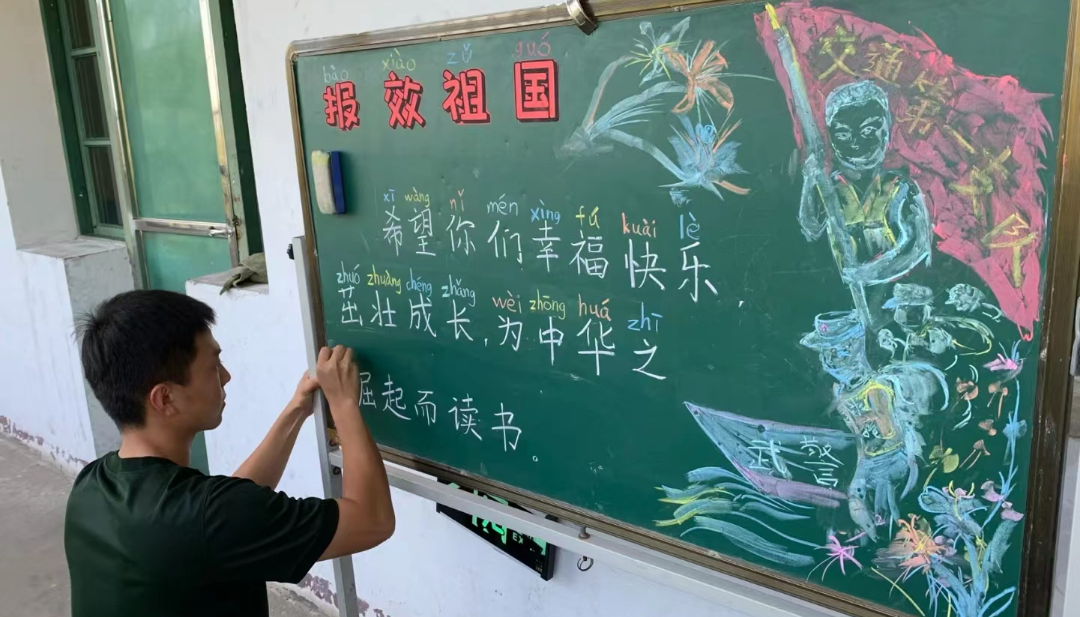 bào xiào zǔ guó
报效祖国
xī wàng nǐ mén xìng fú kuài lè
希望你们幸福快乐,
zhuó zhuàng chéng zhǎng wèi zhōng huá zhī
茁壮成长,为中华之
屈起而读书。
交通
武警